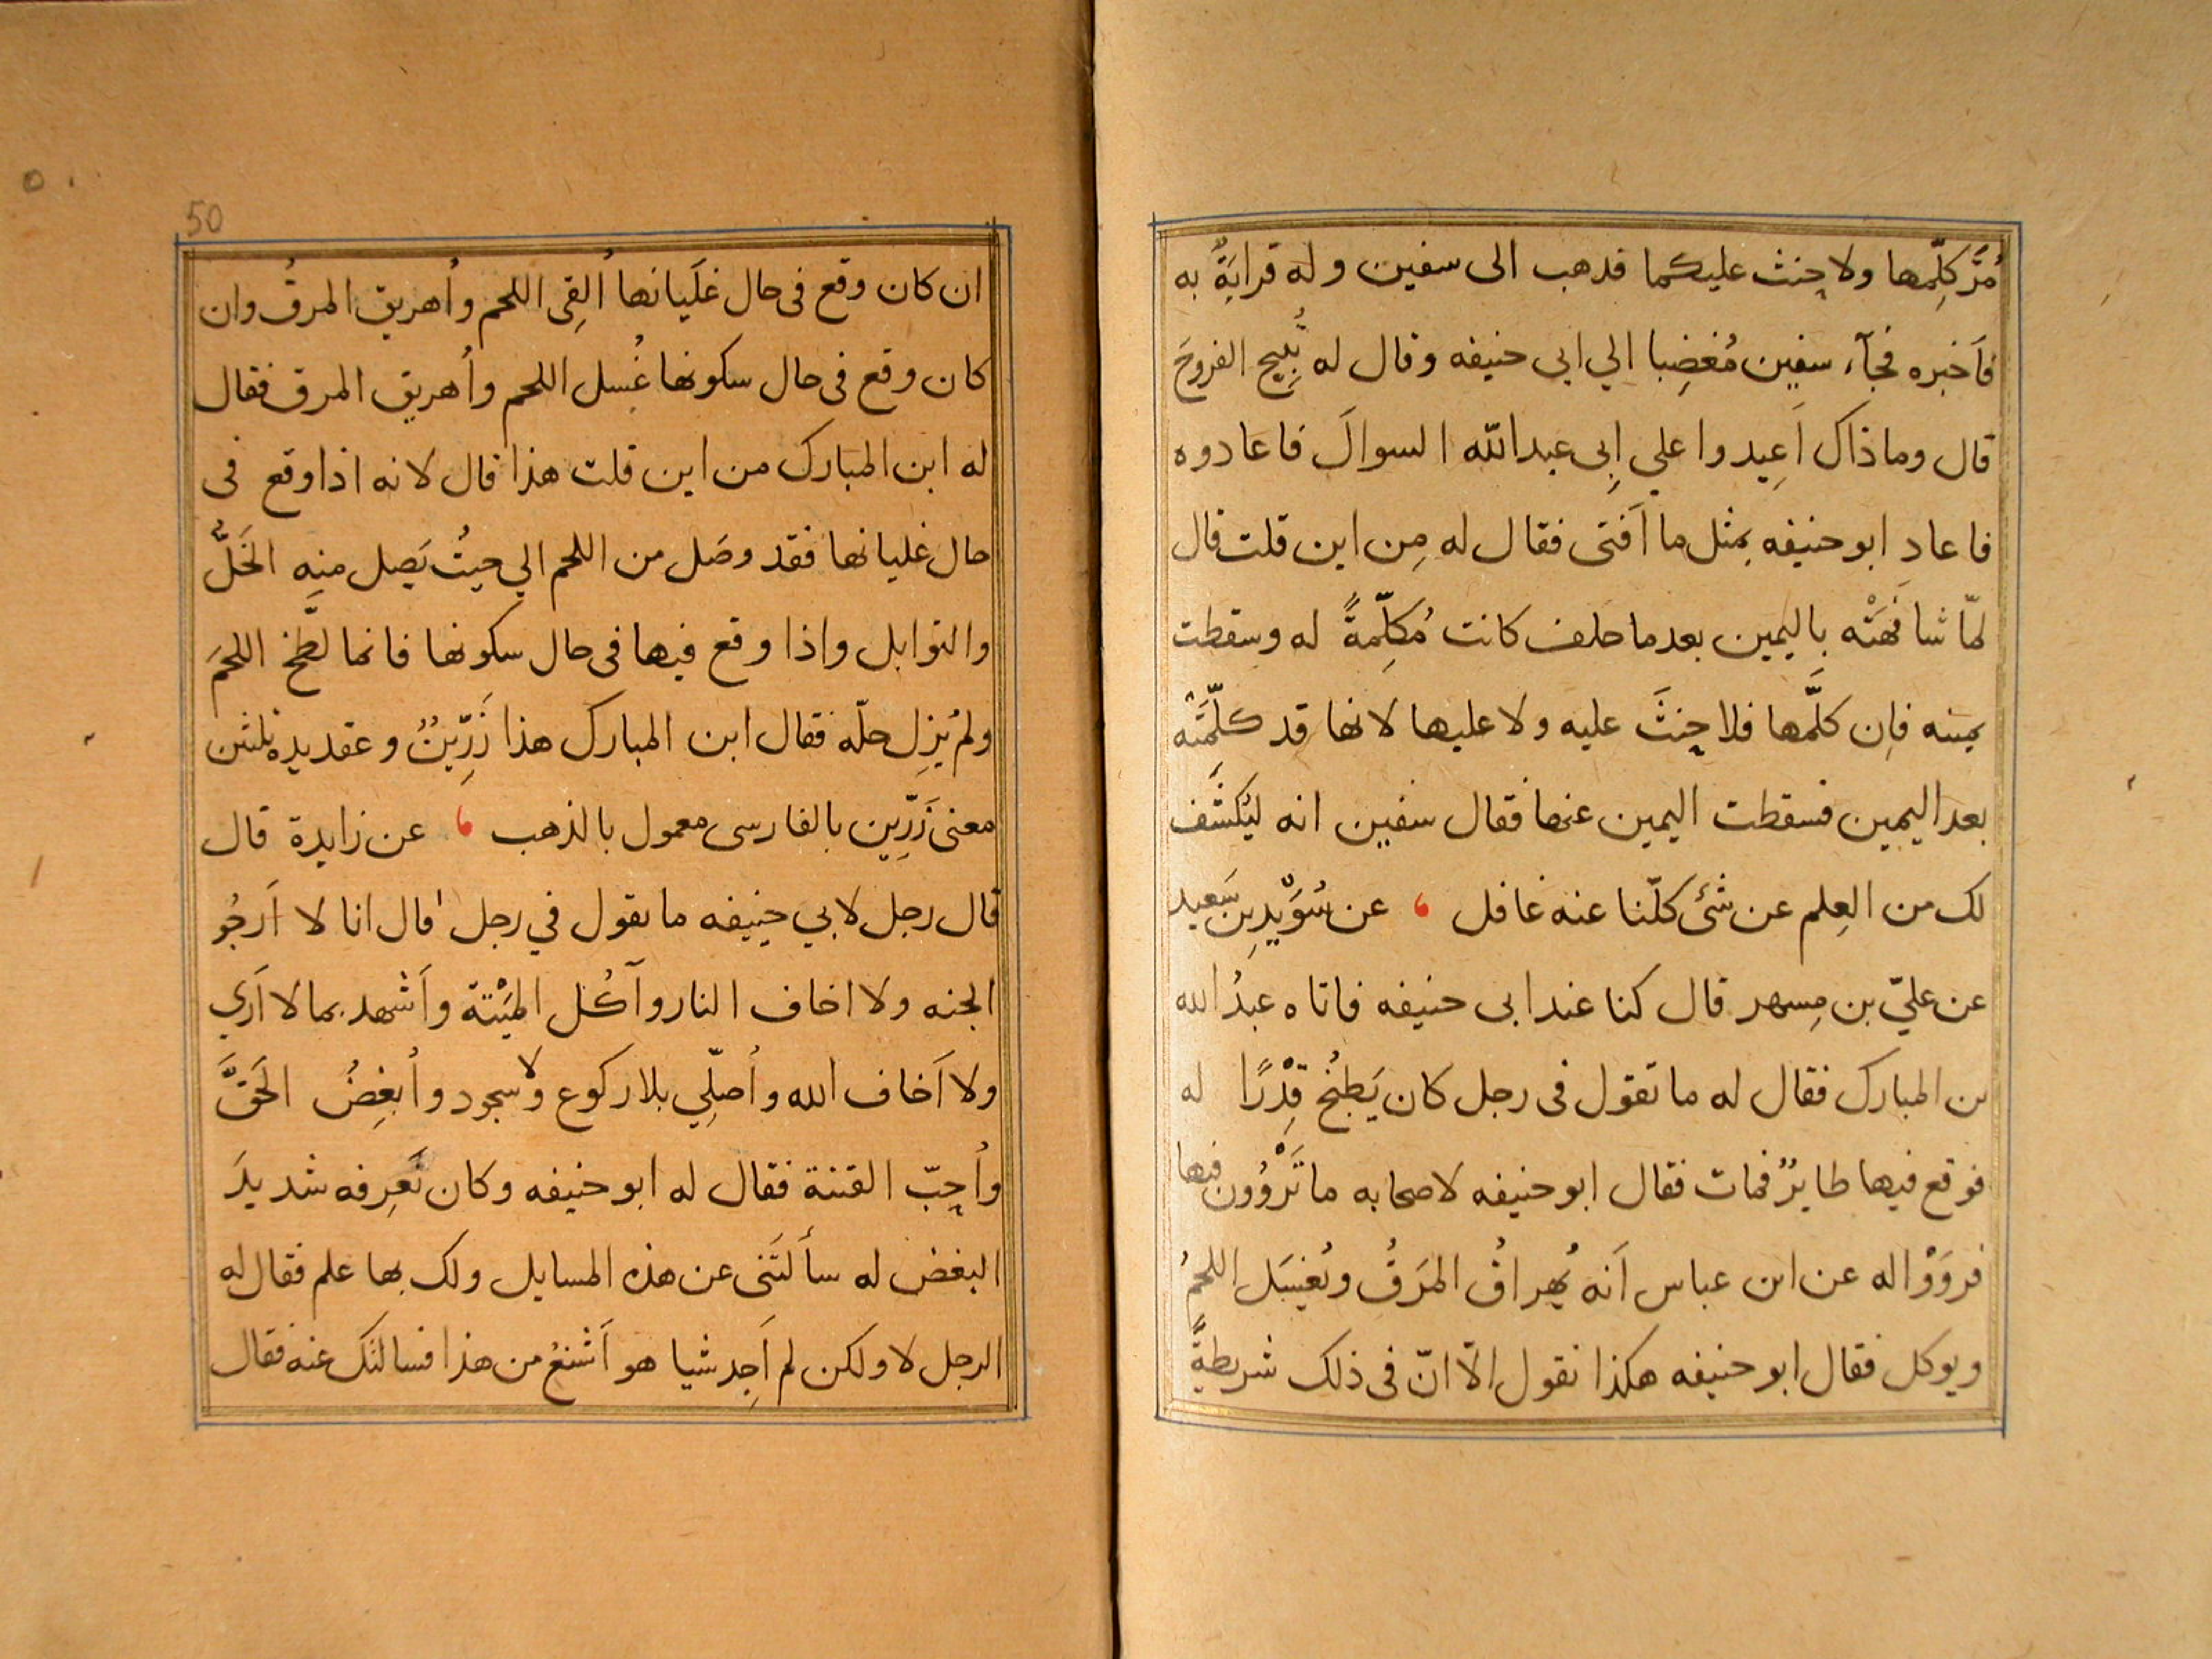 مُرَّ كلِّمها ولا حِنث عليكما فذهب الى سفين وله قرابَةٌ به
فاَخبره فجآء سفين مُغضِبا الي ابى حنيفه وقال له تُبِيح الفروجَ
قال وما ذاك اَعِيدوا علي اِبى عبدالله السوالَ فاعادوه
فاعادِ ابو حنيفه بمثل ما اَفتى فقال له مِن اين قلت قال
لمّا شافَهَتْه بِاليمين بعد ما حلف كانت مُكلِّمةً له وسقطت
يمينه فاِن كلَّمها فلا حِنثَ عليه ولا عليها لانها قد كلَّمَتْه
بعد اليمين فسقطت اليمين عنها فقال سفين انه ليُكشَف
لك من العِلم عن شئ كلّنا عنه غافل ، عن سُوَيْدِ بن سَعيد
عن عليّ بن مِسهر قال كنا عند ابى حنيفه فاتاه عبدُ الله
بن المبارك فقال له ما تقول فى رجل كان يَطبُخ قِدْرًا له
فوقع فيها طايرٌ فمات فقال ابو حنيفه لاصحابه ما تَرْوُون فيها
فروَوْا له عن ابن عباس اَنه يُهراقُ المرَقُ ويُغْسَل اللحمُ
ويوكل فقال ابو حنيفه هكذا نقول الّا انّ فى ذلك شريطةً
50
ان كان وقع فى حال غلَيانها اُلقِى اللحم واُهريق المرقُ وان
كان وقع فى حال سكونها غُسل اللحم واُهريق المرق فقال
له ابن المبارك من اين قلت هذا قال لانه اذا وقع فى
حال غليانها فقد وصَل من اللحم الي حيثُ يَصِل منه الخَلُّ
والتوابل واذا وقع فيها فى حال سكونها فانما لطَّخ اللحمَ
ولم يُزِل حلّه فقال ابن المبارك هذا زَرِّينٌ وعقد يده ثلثين
معنى زَرِّين بالفارسى معمول بالذهب ، عن زايدة قال
قال رجل لابي حنيفه ما تقول في رجل قال انا لا اَرجُو
الجنه ولا اخاف النار وآكُل المَيْتة واَشهد بما لا اَري
ولا اَخاف الله واُصلِّي بلا ركوع ولا سجود واُبغِضُ الحَقَّ
واُحِبّ الفتنة فقال له ابو حنيفه وكان يَعرِفه شديدَ
البغض له سألتَنى عن هذه المسايل ولك بها علم فقال له
الرجل لا ولكن لم اَجِد شيا هو اَشنعُ من هذا فسالتك عنه فقال